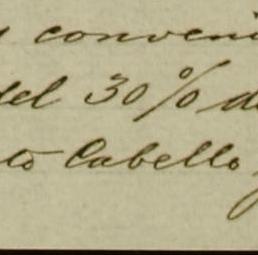 s conveni
del 30% de
to Cabello,